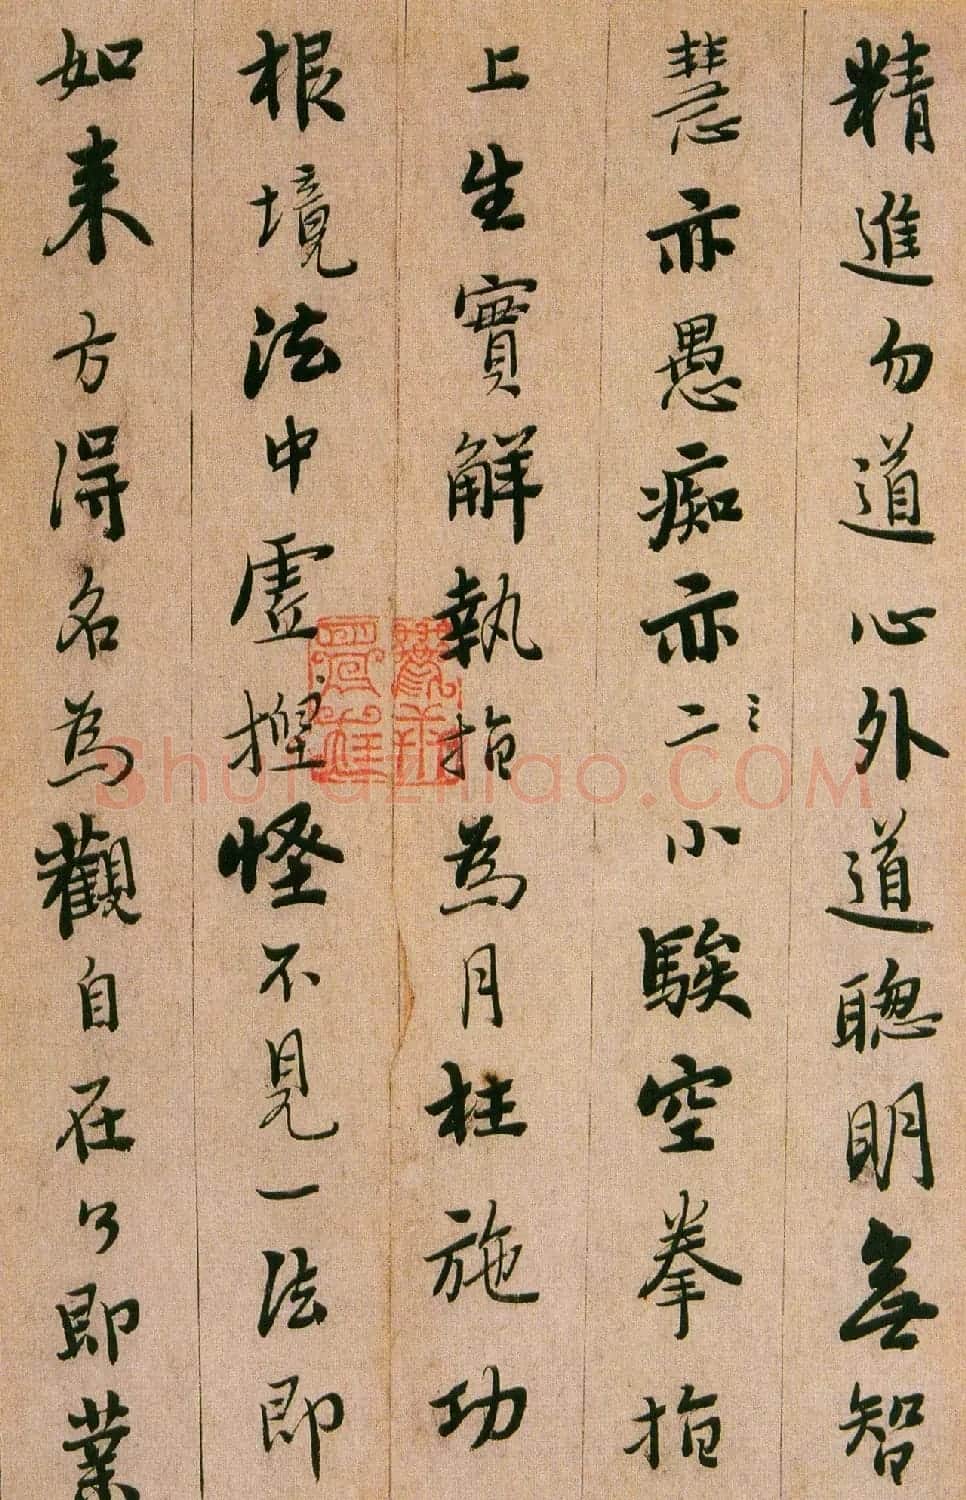 精進勿道心外道聰明無智
慧亦愚癡亦二小騃空拳指
上生實解執指為月枉施功
根境法中虛揑怪不見一法即
如来方得名為觀自在了即業
Shufazhiao.COM